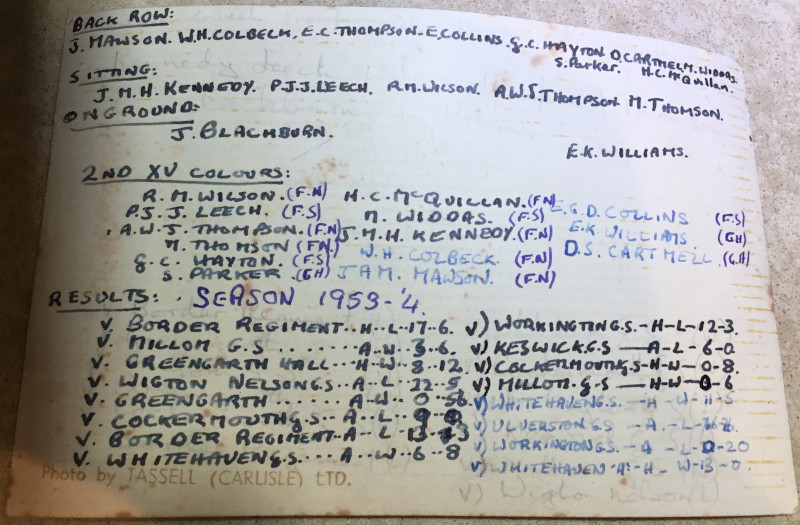 BACK ROW:
J. MAWSON. W.H. COLBECK, E.C. THOMPSON. E. COLLINS. G.C. HAYTON. D. CARTMELL. M. WIDDAS.
S. Parker. H.C. McQuillan.
SITTING:
J.M.H. KENNEDY. P.J.J. LEECH. R.M. WILSON. A.W.J. THOMPSON M. THOMSON.
ON GROUND:
J. BLACHBURN.
E.K. WILLIAMS.
2ND XV COLOURS:
R.M. WILSON. (F.N) H.C. McQUILLAN. (F.N) E.G.D. COLLINS (F.S)
P.J.J. LEECH. (F.S) M. WIDDAS. (F.S) E.K. WILLIAMS (GH)
A.W.J. THOMPSON. (F.N) J.M.H. KENNEDY. (F.N) D.S. CARTMELL. (G.H)
M. THOMSON (F.N) W.H. COLBECK (F.N)
G.C. HAYTON. (F.S) J.A.M. MAWSON. (F.N)
S. PARKER. (GH)
RESULTS: SEASON 1953-'4.
V. BORDER REGIMENT.. H-L-17-6. V) WORKINGTON G.S.-H-L-12-3.
V. MILLOM G.S ...... A.W. 3.6. V) KESWICK.G.S —A-L-6-0
V. GREENGARTH HALL-H-W-8-12. V) COCKERMOUTH G.S-H-W-0-8.
V. WIGTON NELSON G.S. A..L. 22-5 V) MILLOM.G.S — H-W-0-6
V. GREENGARTH .... A.W. 0-56 V) WHITEHAVEN G.S. -H-W-
V. COCKERMOUTH G.S. A..L V) ULVERSTON G.S -A.-L-
V. BORDER REGIMENT-A-L V) WORKINGTON G.S.-A -L -20
V. WHITEHAVEN G.S.... A..W..6-8 V) WHITEHAVEN-A-H-W-13-0.
Photo by TASSELL (CARLISLE) LTD.
V) Wigton Nelson